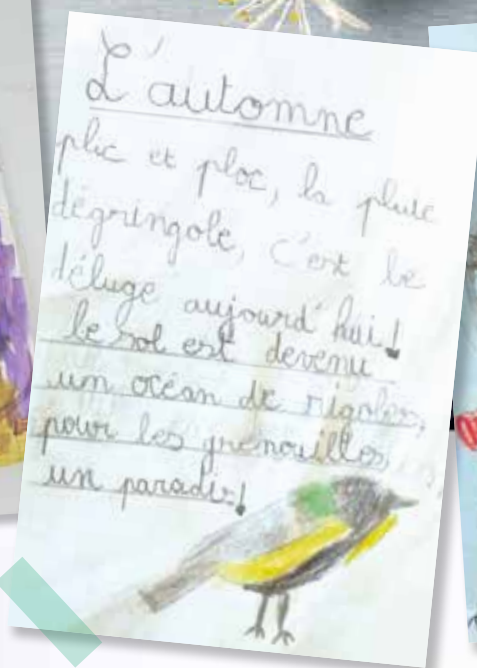 L'automne
plic et ploc, la pluie
dégringole, c'est le
déluge aujourd'hui!
le sol est devenu
un océan de rigoles,
pour les grenouilles,
un paradis!